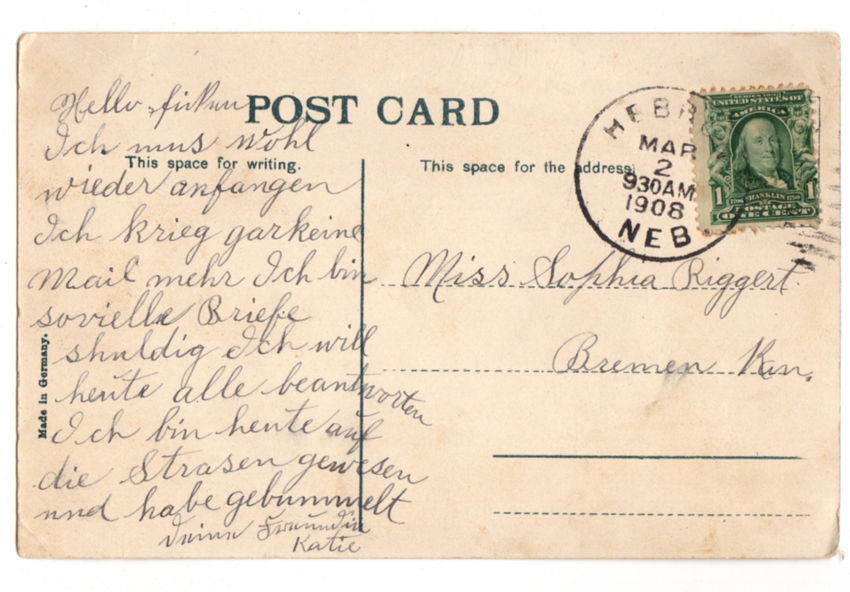 Hello
POST CARD
Ich mus wohl
This space for writing.
wieder anfangen
Ich krieg garkeine
Mail mehr Ich bin
sovielle Briefe
shuldig Ich will
heute alle beantworten
Ich bin heute auf
die Strasen gewesen
und habe gebummelt
deine Freundin
Katie
Made in Germany.
This space for the address.
HEBR
MAR
2
930AM
1908
NEB
SERIES 1902
UNITED STATES OF
AMERICA
1 1
FRANKLIN
POSTAGE
ONE CENT
Miss Sophia Riggert
Bremen Kan.